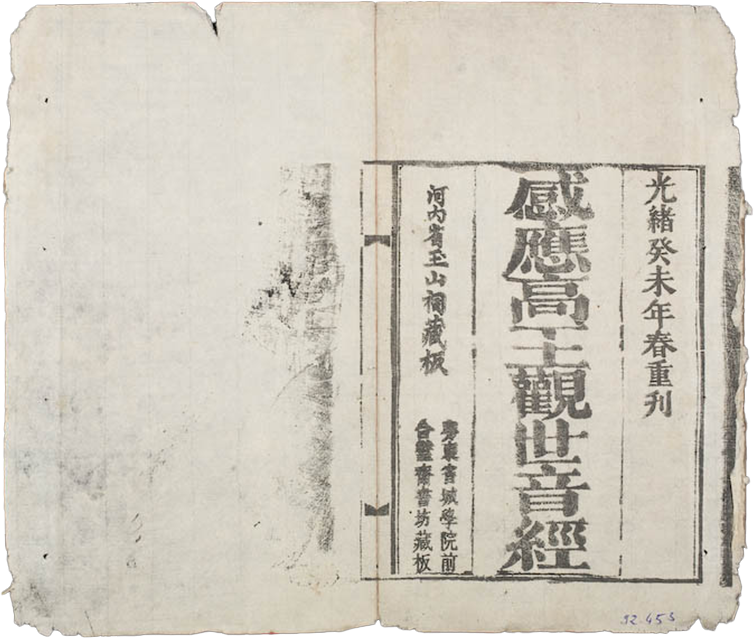 光緒癸未年春重刋
感應高王觀世音經
河内省玉山祠藏板
粤東省城學院前
合璧齋書坊藏板
92.455